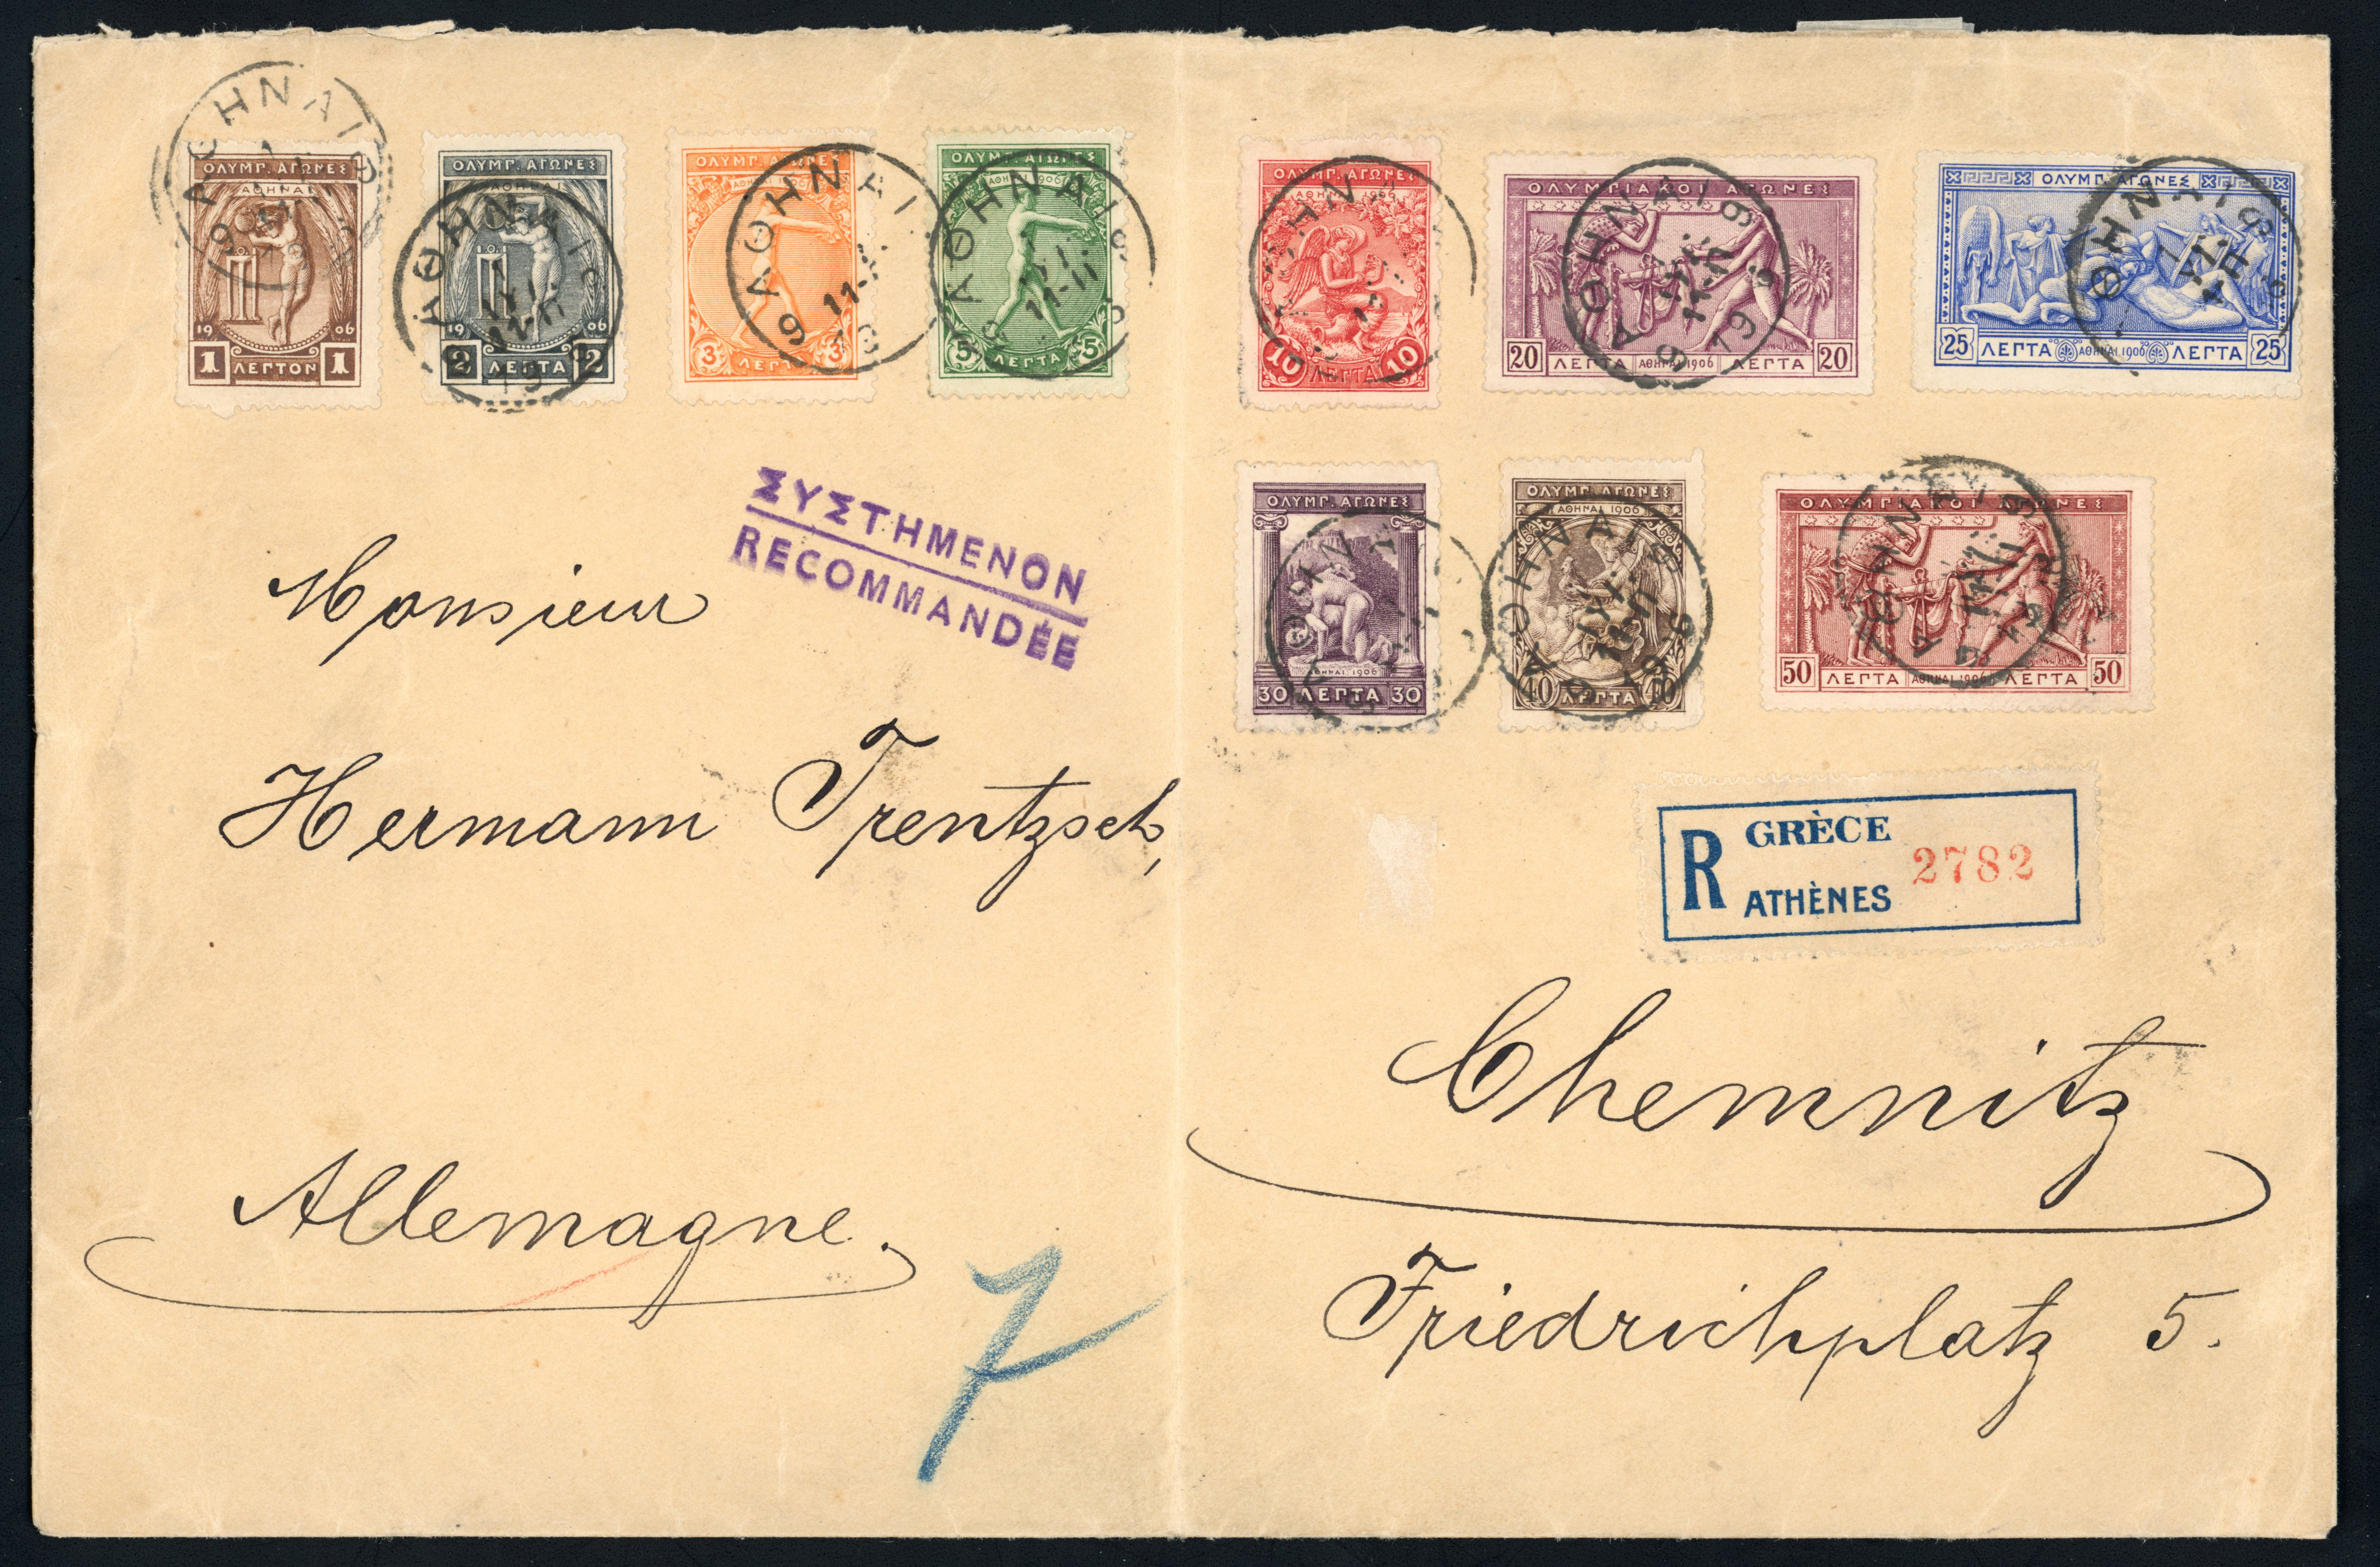 ΟΛΥΜΠ. ΑΓΩΝΕΣ
ΑΘΗΝΑΙ
19 06
1 ΛΕΠΤΟΝ 1
ΟΛΥΜΠ. ΑΓΩΝΕΣ
ΑΘΗΝΑΙ
19 06
2 ΛΕΠΤΑ 2
ΟΛΥΜΠ. ΑΓΩΝΕΣ
3 ΛΕΠΤΑ 3
ΟΛΥΜΠ. ΑΓΩΝΕΣ
5 ΛΕΠΤΑ 5
ΟΛΥΜΠ. ΑΓΩΝΕΣ
10 ΛΕΠΤΑ 10
ΟΛΥΜΠΙΑΚΟΙ ΑΓΩΝΕΣ
20 ΛΕΠΤΑ ΑΘΗΝΑΙ 1906 ΛΕΠΤΑ 20
ΟΛΥΜΠ. ΑΓΩΝΕΣ
25 ΛΕΠΤΑ ΑΘΗΝΑΙ 1906 ΛΕΠΤΑ 25
ΑΘΗΝΑΙ
ΑΘΗΝΑΙ
ΑΘΗΝΑΙ
ΑΘΗΝΑΙ
ΑΘΗΝΑΙ
ΟΛΥΜΠ. ΑΓΩΝΕΣ
ΑΘΗΝΑΙ 1906
30 ΛΕΠΤΑ 30
ΟΛΥΜΠ. ΑΓΩΝΕΣ
ΑΘΗΝΑΙ 1906
40 ΛΕΠΤΑ 40
ΟΛΥΜΠΙΑΚΟΙ ΑΓΩΝΕΣ
50 ΛΕΠΤΑ ΑΘΗΝΑΙ 1906 ΛΕΠΤΑ 50
ΣΥΣΤΗΜΕΝΟΝ
RECOMMANDÉE
Monsieur
Hermann Trentzsch,
R GRÈCE 2782
ATHÈNES
Chemnitz
Allemagne.
Friedrichplatz 5.
7